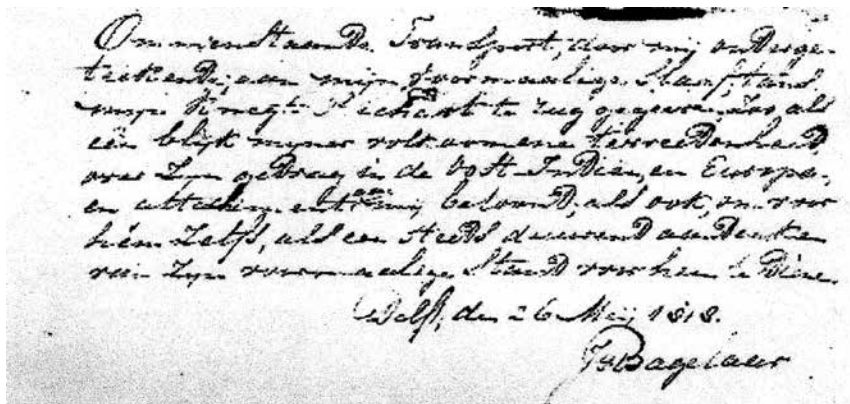 Ommenstaande Transport, door mij onderge-
teekende, aan mijn voormaalige Slaaf, thans
mijn Knegt Richart te rug gegeven, zoo als
een blijk mijner volkoomene tevreedenheid
over Zijn gedrag in de Oost-Indien, en Europa,
en attachement aan mij betoond, als ook, om voor
hem Zelfs, als een steeds duurend aandenken
van Zijn voormaalige Stand voor hem te dienen
Delft, den 26 Meij 1818.
Bagelaar